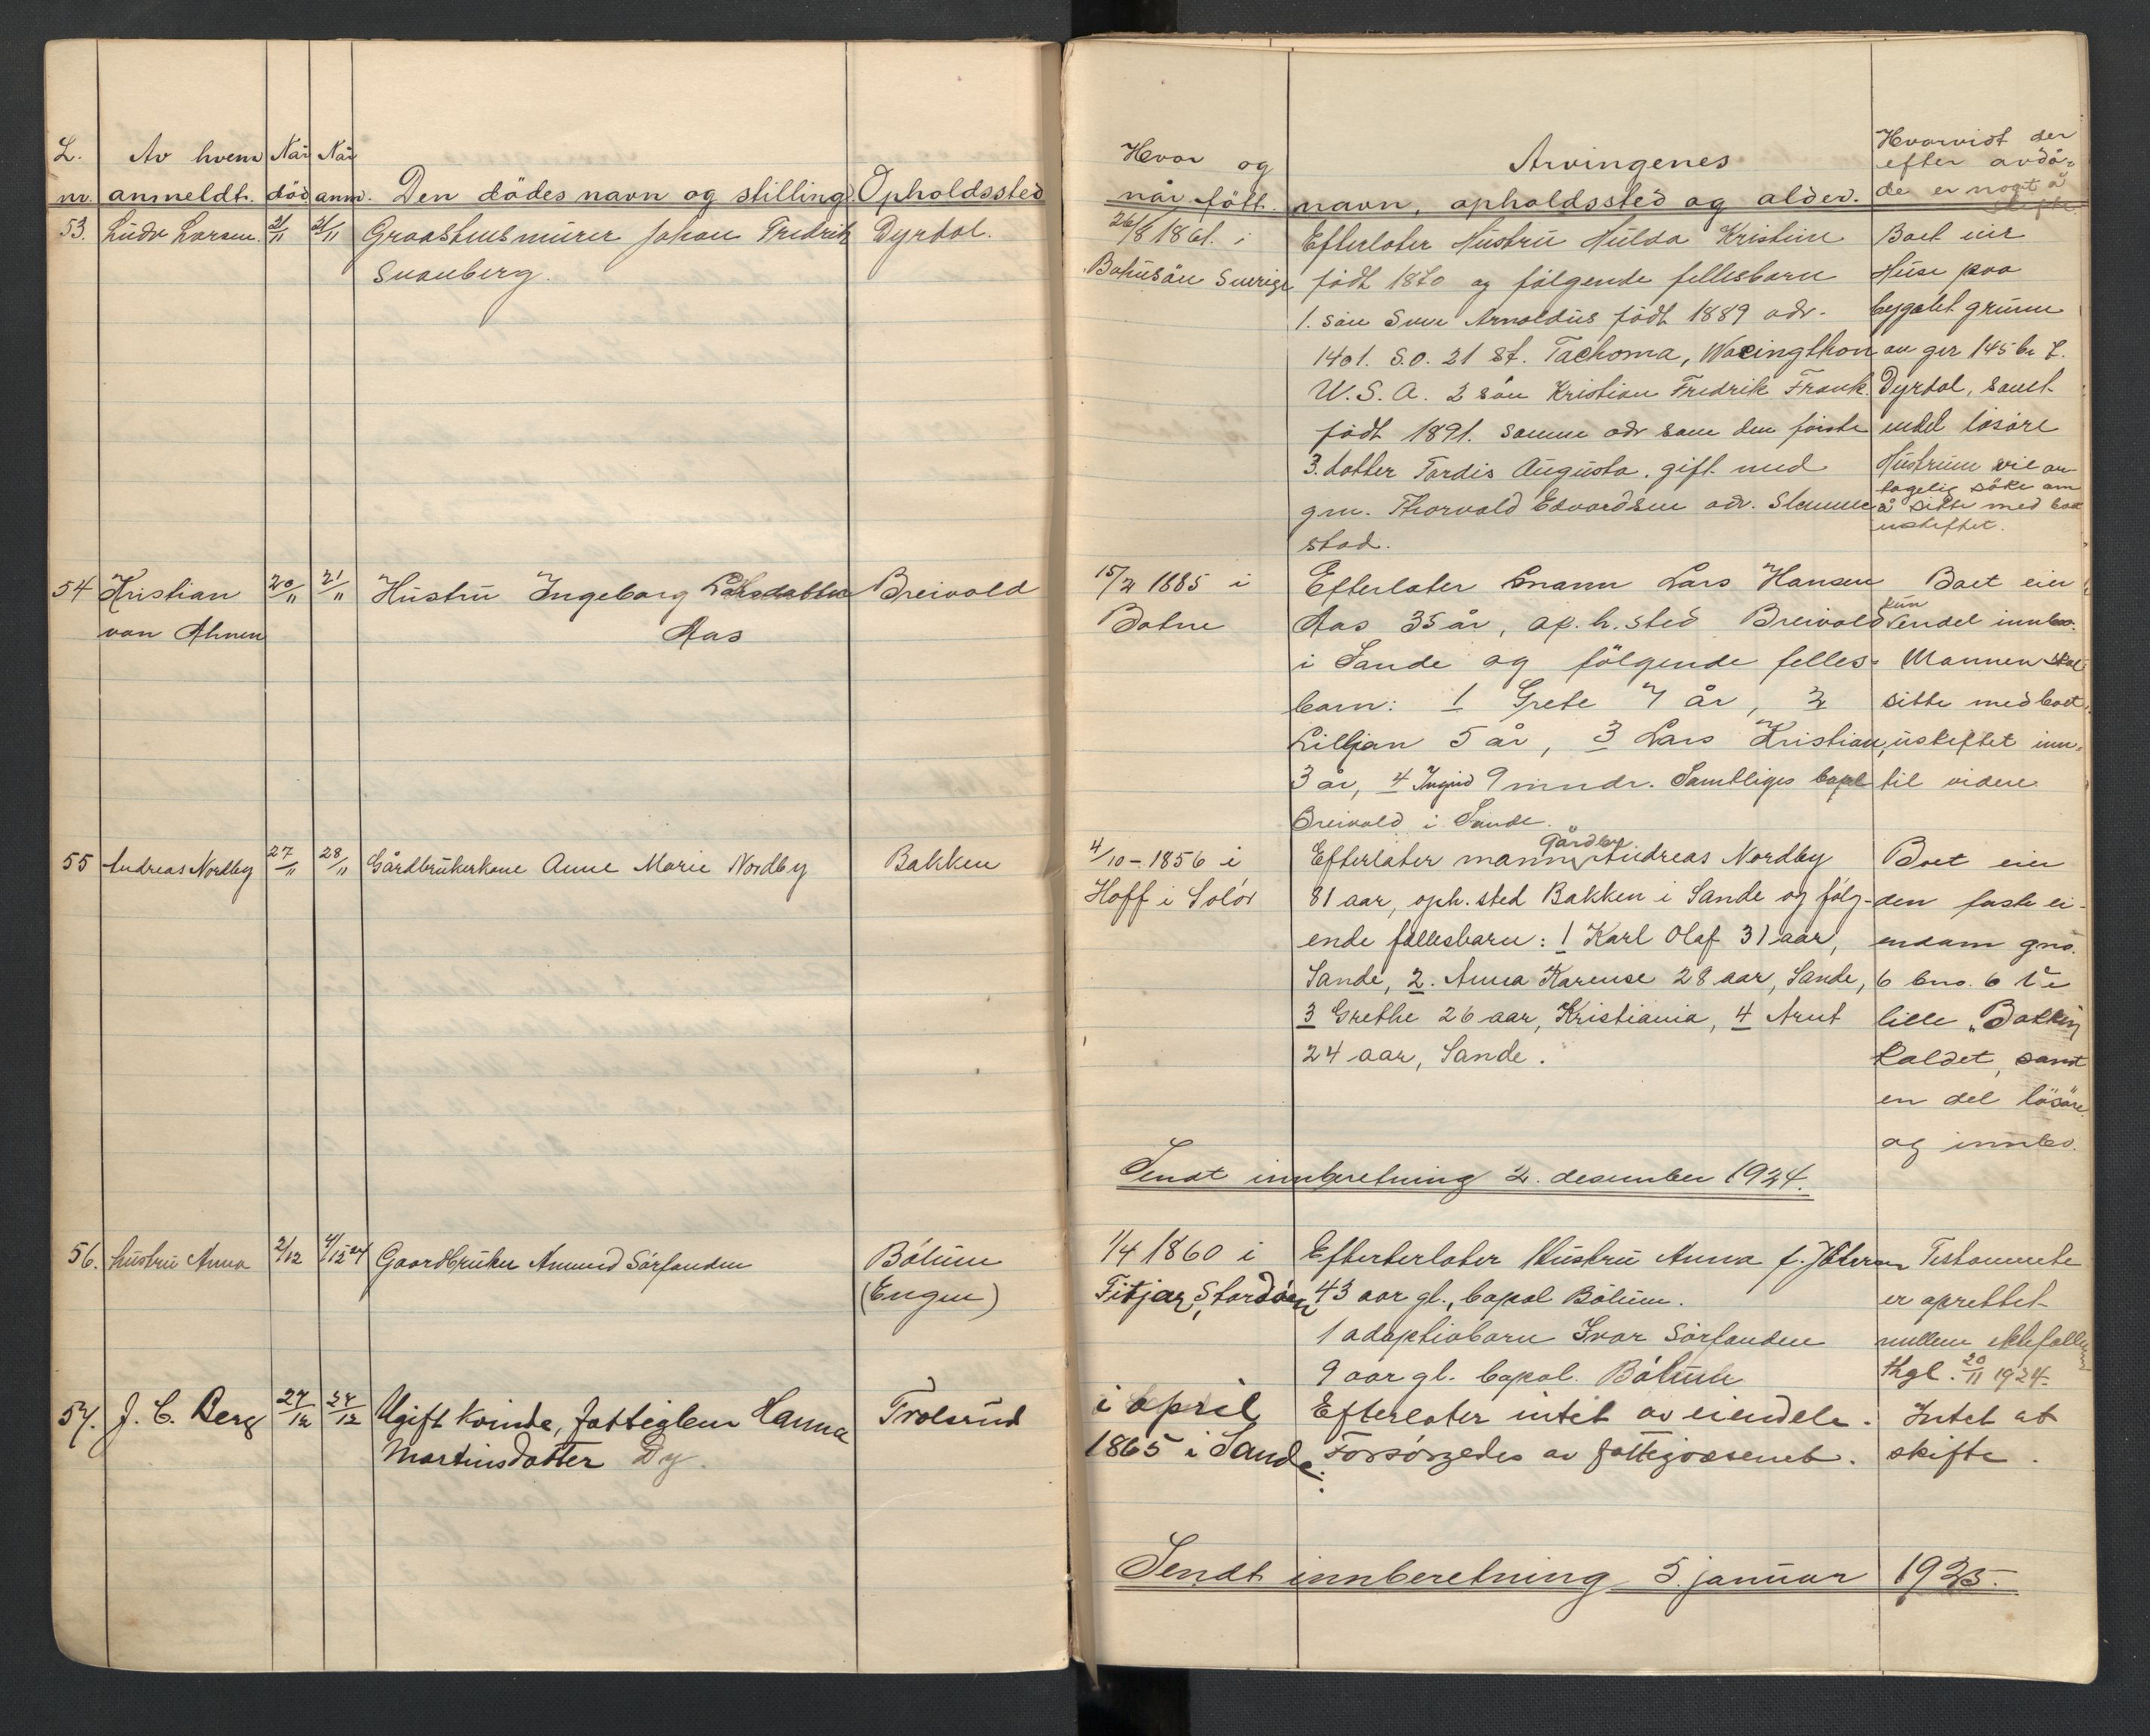 L. Av hvem Når Når
nr. anmeldt. död anm. Den dödes navn og stilling Opholdssted
53. Ludv Larsen. 21/11 21/11 Graastensmurer Johan Fredrik Dyrdal.
Svanberg.
54 Kristian 20/11 21/11 Hustru Ingeborg Larsdatter Breivold
von Ahnen Aas
55 Andreas Nordby 27/11 28/11 Gårdbrukerkone Anne Marie Nordby Bakken
56. hustru Anna 2/12 4/12 24 Gaardbruker Amund Sörfonden Bölum
(Engen)
57. J. C. Berg 27/12 27/12 Ugift kvinde, fattiglem Hanna Trolsrud
Martinsdatter Dy.
Hvor og Arvingenes Hvorvidt der
når födt. navn, opholdssted og alder. efter avdö-
de er noget å
skifte
26/8 1861. i Efterlater Hustru Hulda Kristine Boet eier
Bohuslän Sverige födt 1870 og fölgende fellesbarn Huse paa
1. sön Sven Arnoldus födt 1889 adr. bygslet grunn
1401. S.O. 21 St. Tachoma, Wacingthon av gnr 145 br 7.
U.S.A. 2 sön Kristian Fredrik Frank. Dyrdal, samt
födt 1891. samme adr som den förste endel lösöre
3. datter Tordis Augusta. gift med Hustruen vil an
gm. Thorvald Edvardsen adr. Slemme tagelig söke om
stad. å sitte med boet
uskiftet.
15/2 1885 i Efterlater mann Lars Hansen Boet eier
Botne Aas 35 år, op.h.sted Breivold kun endel innbo.
i Sande og fölgende felles- Mannen skal
barn: 1 Grete 7 år, 2 sitte med boet
Lilljan 5 år, 3 Lars Kristian, uskiftet inn-
3 år, 4 Ingrid 9 mndr. Samtliges bopel til videre
Breivold i Sande.
4/10-1856 i Efterlater mann Gårdbr Andreas Nordby Boet eier
Hoff i Solör 81 aar, oph.sted Bakken i Sande og fölg- den faste ei-
ende fællesbarn: 1 Karl Olaf 31 aar, endom gno.
Sande, 2. Anna Karense 28 aar, Sande, 6 bno. 6 i
3 Grethe 26 aar, Kristiania, 4 Arnt lille "Bakken"
24 aar, Sande. kaldet, samt
en del lösöre
og innbo.
Sendt innberetning 2. desember 1924.
1/4 1860 i Efterterlater Hustru Anna f. Testamente
Fitjar, Stordöen 43 aar gl., bopel Bölum. er oprettet
1 adoptivbarn Ivar Sörfonden mellem ektefellene
9 aar gl. bopel. Bölum thgl. 20/11 1924.
i april Efterlater intet av eiendele. Intet at
1865 i Sande. Forsörgedes av fattigvæsenet. skifte.
Sendt innberetning 5. januar 1925.